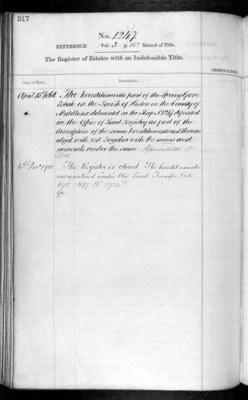 317
No. 1247.
REFERENCE Vol. 3 Record of Title.
The Register of Estates with an Indefeasible Title.
OBSERVATIONS
Date of Entry.
Description.
April 15th 1864 The hereditaments part of the Spring Grove
Estate in the Parish of Heston in the County of
Middlesex delineated in the Map deposited
in the Office of Land Registry as part of the
description of the same hereditaments and thereon
edged with red Together with the mines and
minerals under the same
The Register is closed. The hereditaments
are registered under the Land Transfer Acts
1875 & 1897